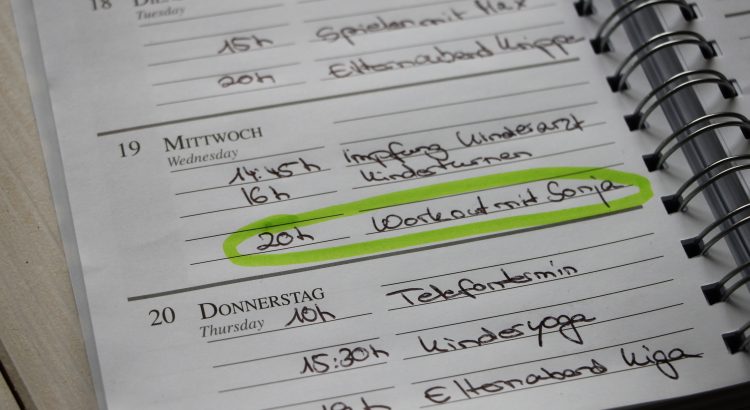 18
Tuesday
15h Spielen mit Max
20h Elternabend Krippe
19 MITTWOCH
Wednesday
14:45h Impfung Kinderarzt
16h Kinderturnen
20h Workout mit Sonja
20 DONNERSTAG
Thursday 10h Telefontermin
15:30h Kinderyoga
Elternabend Kiga